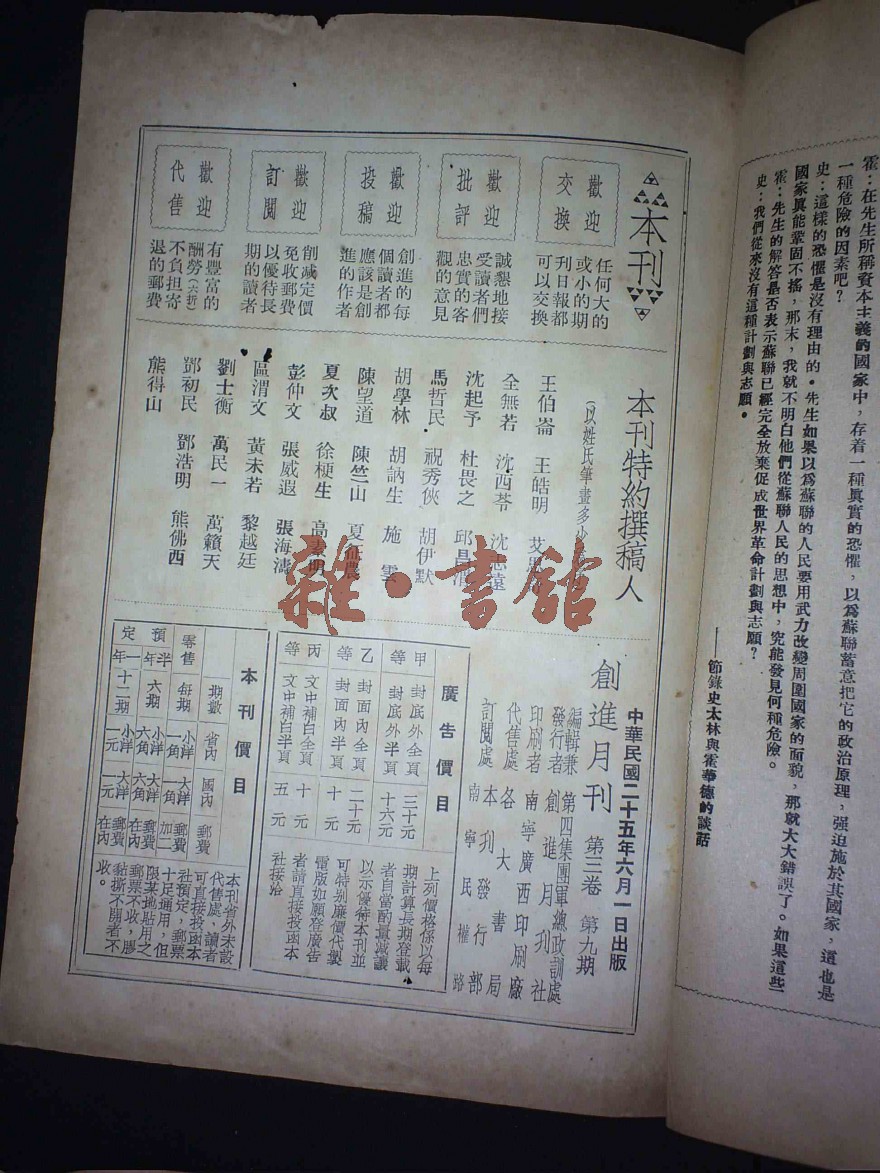 霍：在先生所稱資本主義的國家中，存着一種眞實的恐懼，以爲蘇聯蓄意把它的政治原理，强迫施於其國家，這也是
一種危險的因素吧？
史：這樣的恐懼是沒有理由的。先生如果以爲蘇聯的人民要用武力改變周圍國家的面貌，那就大大錯誤了。如果這些
國家眞能鞏固不搖，那末，我就不明白他們從蘇聯人民的思想中，究能發見何種危險。
霍：先生的解答是否表示蘇聯已經完全放棄促成世界革命計劃與志願？
史：我們從來沒有這種計劃與志願。
——節錄史太林與霍華德的談話
本刊
歡迎
交換
任何大的
或小的期
刊日報都
可以交換
歡迎
批評
誠懇地接
受讀者們
忠實的客
觀的意見
歡迎
投稿
創進的每
個讀者都
應該是創
進的作者
歡迎
訂閱
削減定價
免收郵費
以優待長
期的讀者
歡迎
代售
有豐富的
酬勞(六折)
不負担寄
退的郵費
本刊特約撰稿人
(以姓氏筆畫多少
王伯崙 王皓明 艾
全無若 沈西苓 沈志遠
沈起予 杜畏之 邱昌
馬哲民 祝秀俠 胡伊默
胡學林 胡訥生 施雲
陳望道 陳竺山 夏征農
夏次叔 徐梗生 高素明
彭仲文 張威遐 張海濤
區渭文 黃未若 黎越廷
劉士衡 萬民一 萬籟天
鄧初民 鄧浩明 熊佛西
熊得山
雜·書館
中華民國二十五年六月一日出版
創進月刊 第三卷 第九期
編輯兼 第四集團軍總政訓處
發行者 創進月刊社
印刷者 南寧廣西印刷廠
代售處 各大書局
訂閱處 本刊發行部
南寧民權路
廣告價目
甲等 封底外全頁 三十元
封底外半頁 十六元
乙等 封面內全頁 二十元
封面內半頁 十元
丙等 文中補白全頁 十元
文中補白半頁 五元
上列價格係以每
期計算長期登載
者自當酌量減讓
以示優待本刊並
可特别廉價代製
電版如願登廣告
者請直接投函本
社接洽
本刊價目
期數 省內 國內 郵費
零售 每期 小洋一角 大洋一角 郵費加二
預定 半年 六期 小洋六角 大洋六角 郵費在內
一年 十二期 小洋一元 大洋一元 郵費在內
本刊省外未設
代售處，讀者
可直接投函本
社預定，郵票
十足通用，但
限某地貼用之
郵票不收，膠
黏撕不開者不
收。